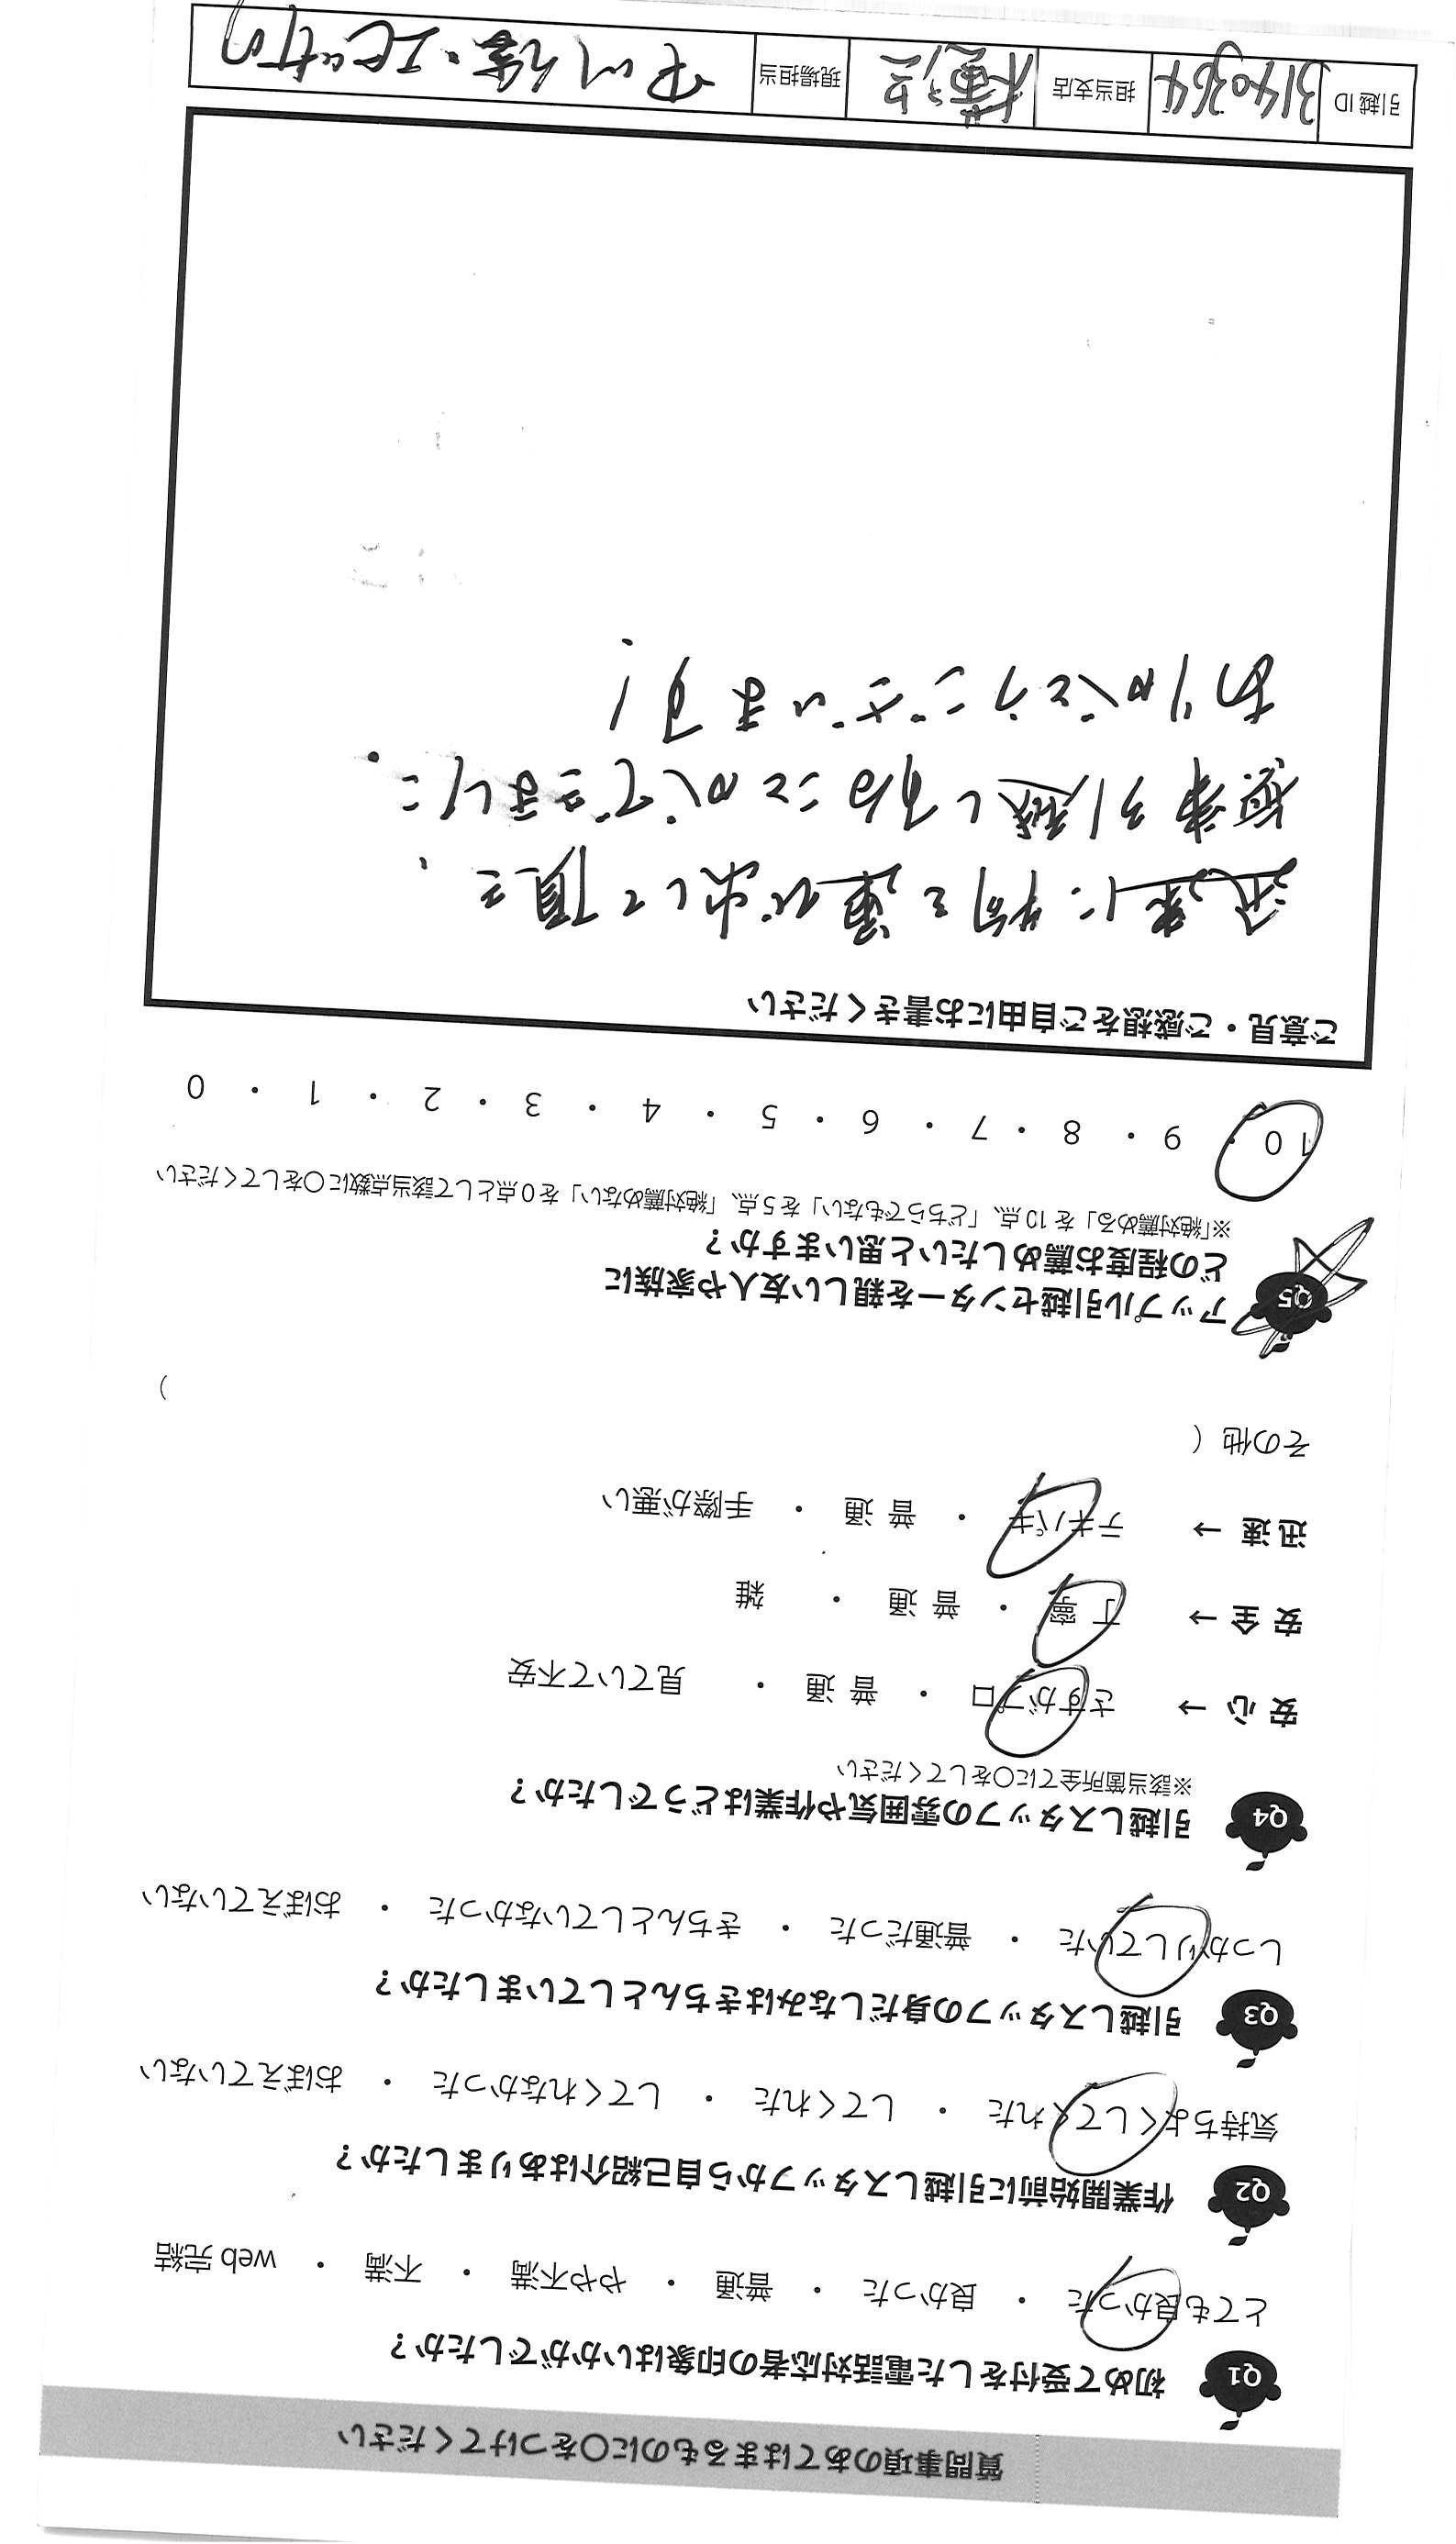 質問事項のあてはまるものに〇をつけてください
Q1 初めて受付をした電話対応者の印象はいかがでしたか？
とても良かった ・ 良かった ・ 普通 ・ やや不満 ・ 不満 ・ web 完結
Q2 作業開始前に引越しスタッフから自己紹介はありましたか？
気持ちよくしてくれた ・ してくれた ・ してくれなかった ・ おぼえていない
Q3 引越しスタッフの身だしなみはきちんとしていましたか？
しっかりしていた ・ 普通だった ・ きちんとしていなかった ・ おぼえていない
Q4 引越しスタッフの雰囲気や作業はどうでしたか？
※該当箇所全てに〇をしてください
安 心 → さすがプロ ・ 普 通 ・ 見ていて不安
安 全 → 丁 寧 ・ 普 通 ・ 雑
迅 速 → テキパキ ・ 普 通 ・ 手際が悪い
その他（ ）
Q5 アップル引越センターを親しい友人や家族に
どの程度お薦めしたいと思いますか？
※「絶対薦める」を 10 点、「どちらでもない」を 5 点、「絶対薦めない」を 0 点として該当点数に〇をしてください
10 ・ 9 ・ 8 ・ 7 ・ 6 ・ 5 ・ 4 ・ 3 ・ 2 ・ 1 ・ 0
ご意見・ご感想をご自由にお書きください
迅速に物を運び出して頂き、
引越しすることができました。
ありがとうございます！
引越 ID 3140364 担当支店 横浜 現場担当